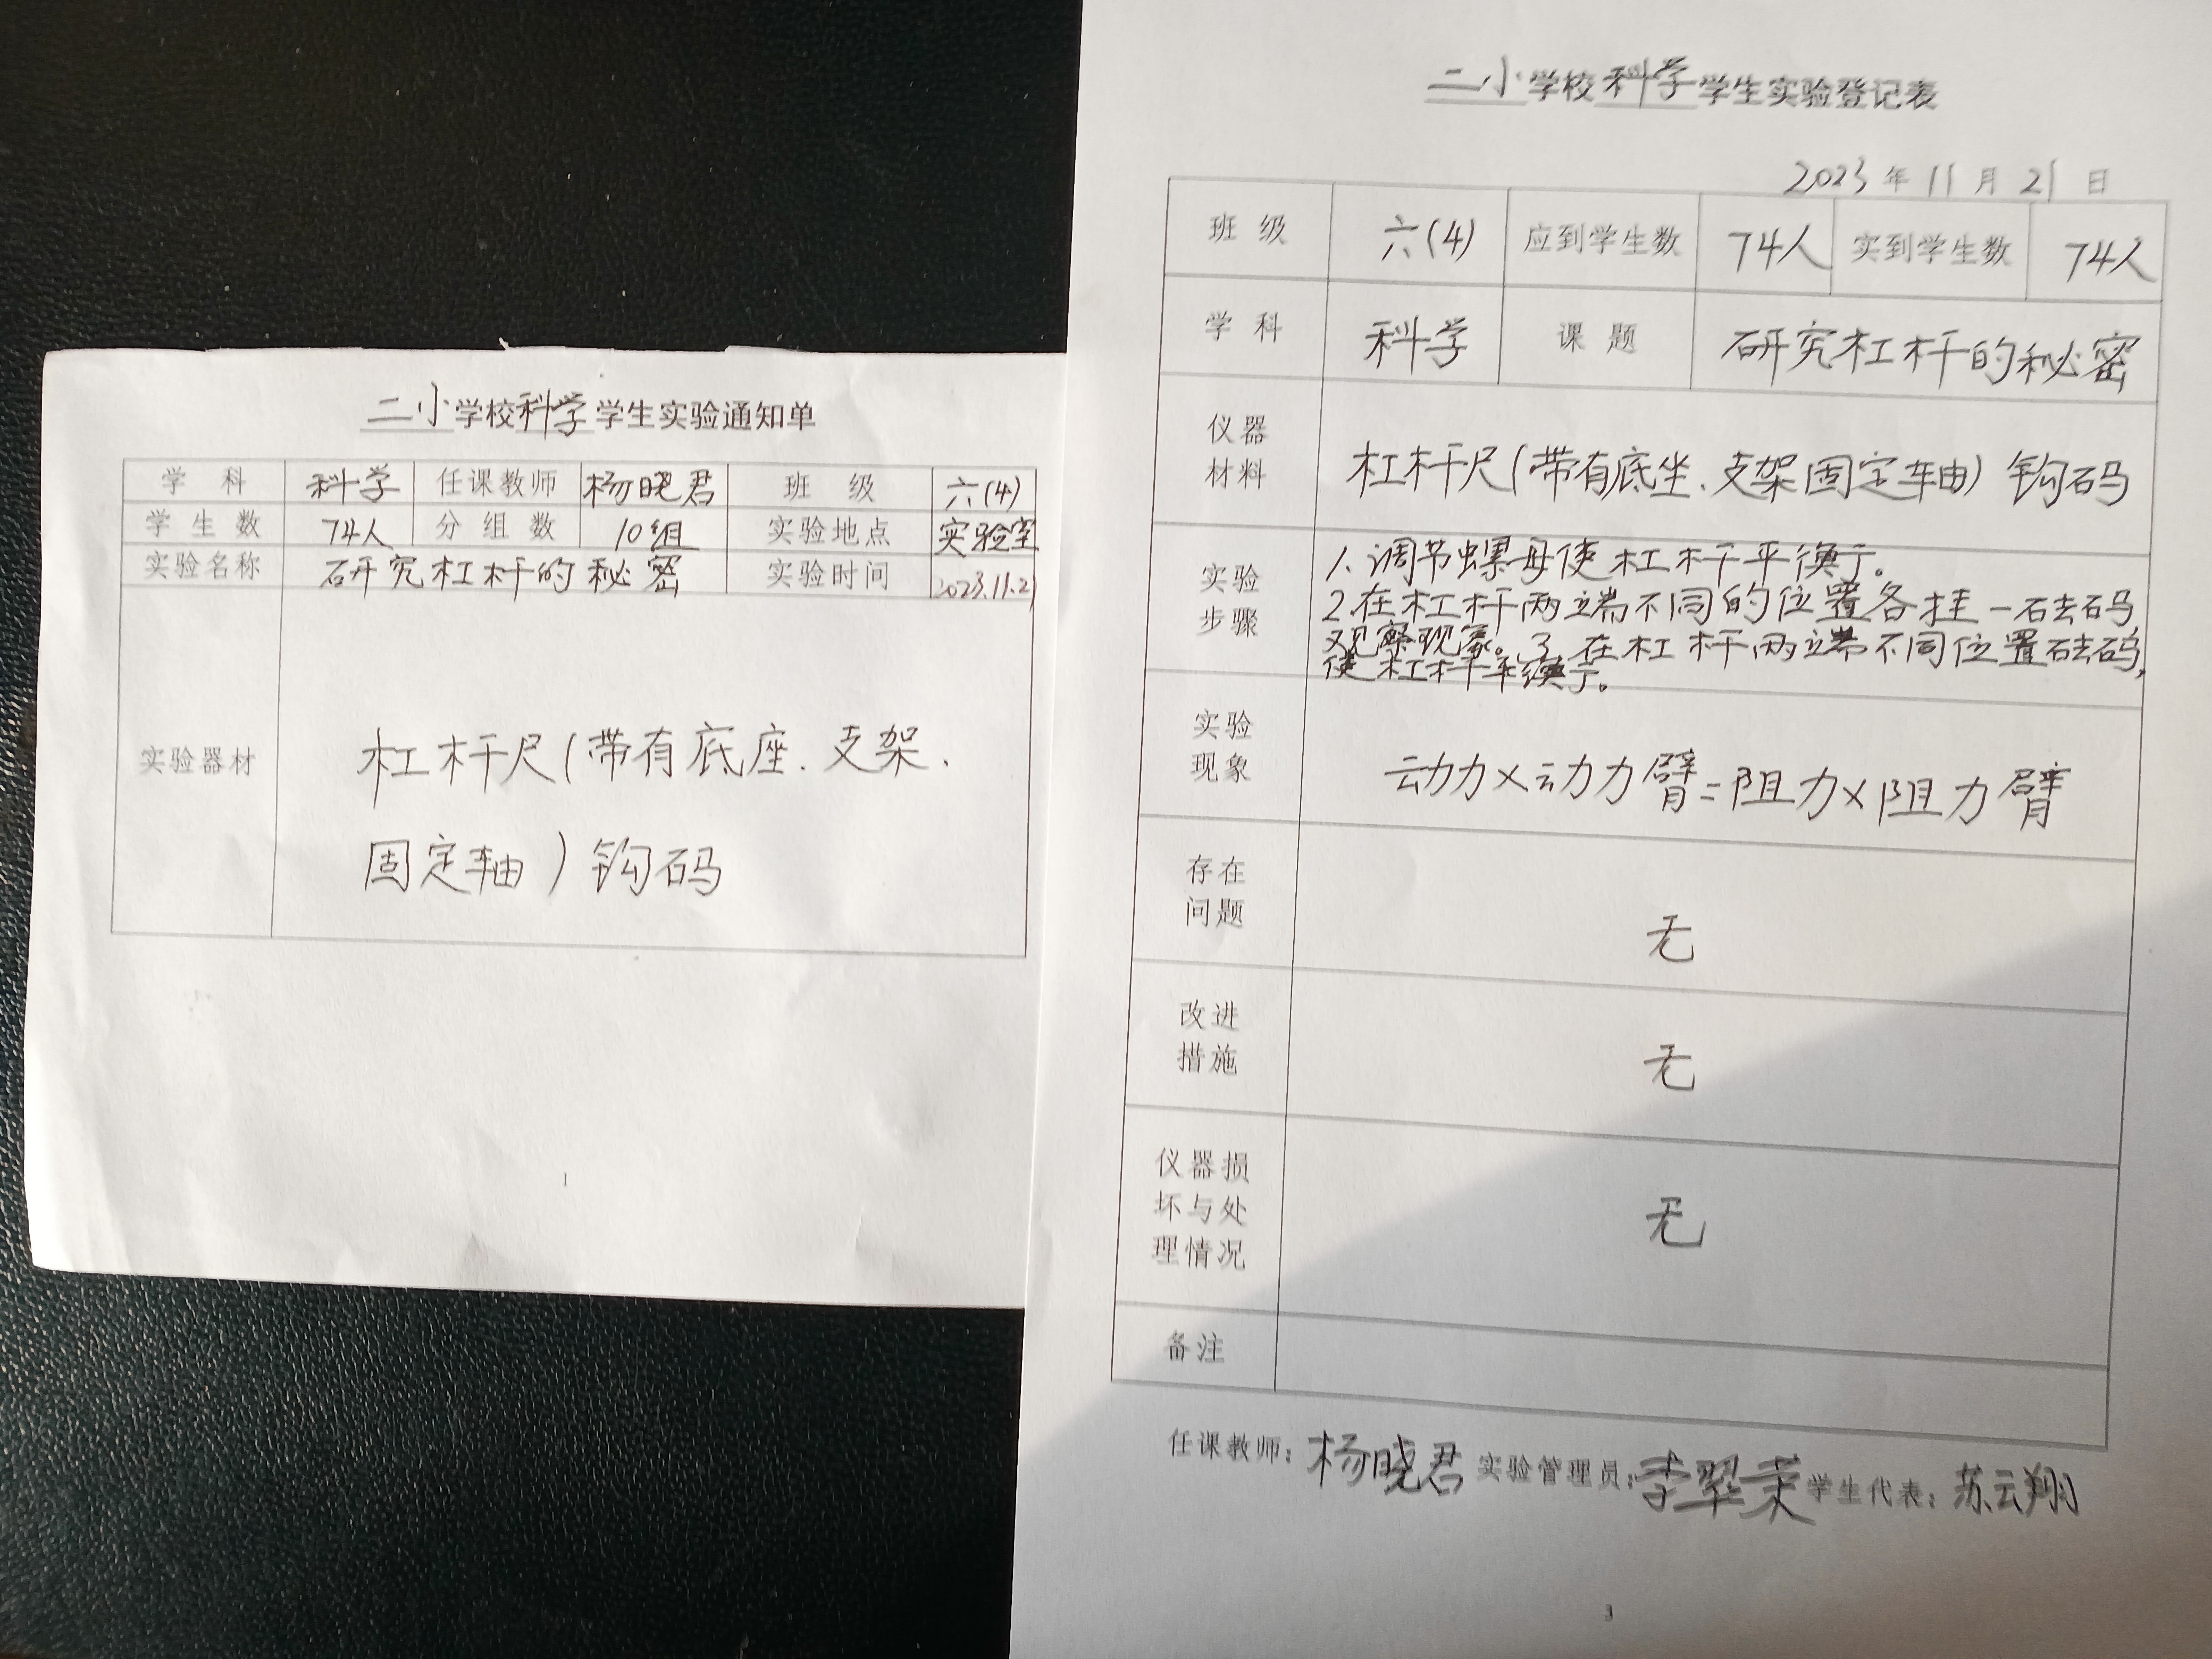 二小学校科学学生实验通知单
学科 科学 任课教师 杨晓君 班级 六(4)
学生数 74人 分组数 10组 实验地点 实验室
实验名称 研究杠杆的秘密 实验时间 2023.11.21
实验器材
杠杆尺(带有底座、支架、
固定轴)钩码
1
二小学校科学学生实验登记表
2023年11月21日
班级 六(4) 应到学生数 74人 实到学生数 74人
学科 科学 课题 研究杠杆的秘密
仪器
材料
杠杆尺(带有底坐、支架固定轴)钩码
实验
步骤
1.调节螺母使杠杆平衡。
2.在杠杆两端不同的位置各挂一砝码,
观察现象。3.在杠杆两端不同位置砝码,
使杠杆平衡。
实验
现象
动力×动力臂=阻力×阻力臂
存在
问题
无
改进
措施
无
仪器损
坏与处
理情况
无
备注
任课教师:杨晓君 实验管理员:李翠 学生代表:苏云翔
3